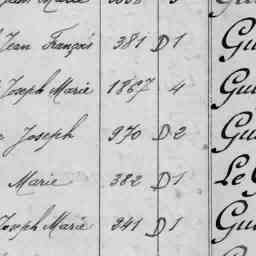 Jean François 381 D 1 Gu
Joseph Marie 1867 4 Gu
Joseph 970 D 2 Gu
Marie 382 D 1 Le G
Joseph Marie 341 D 1 Gu